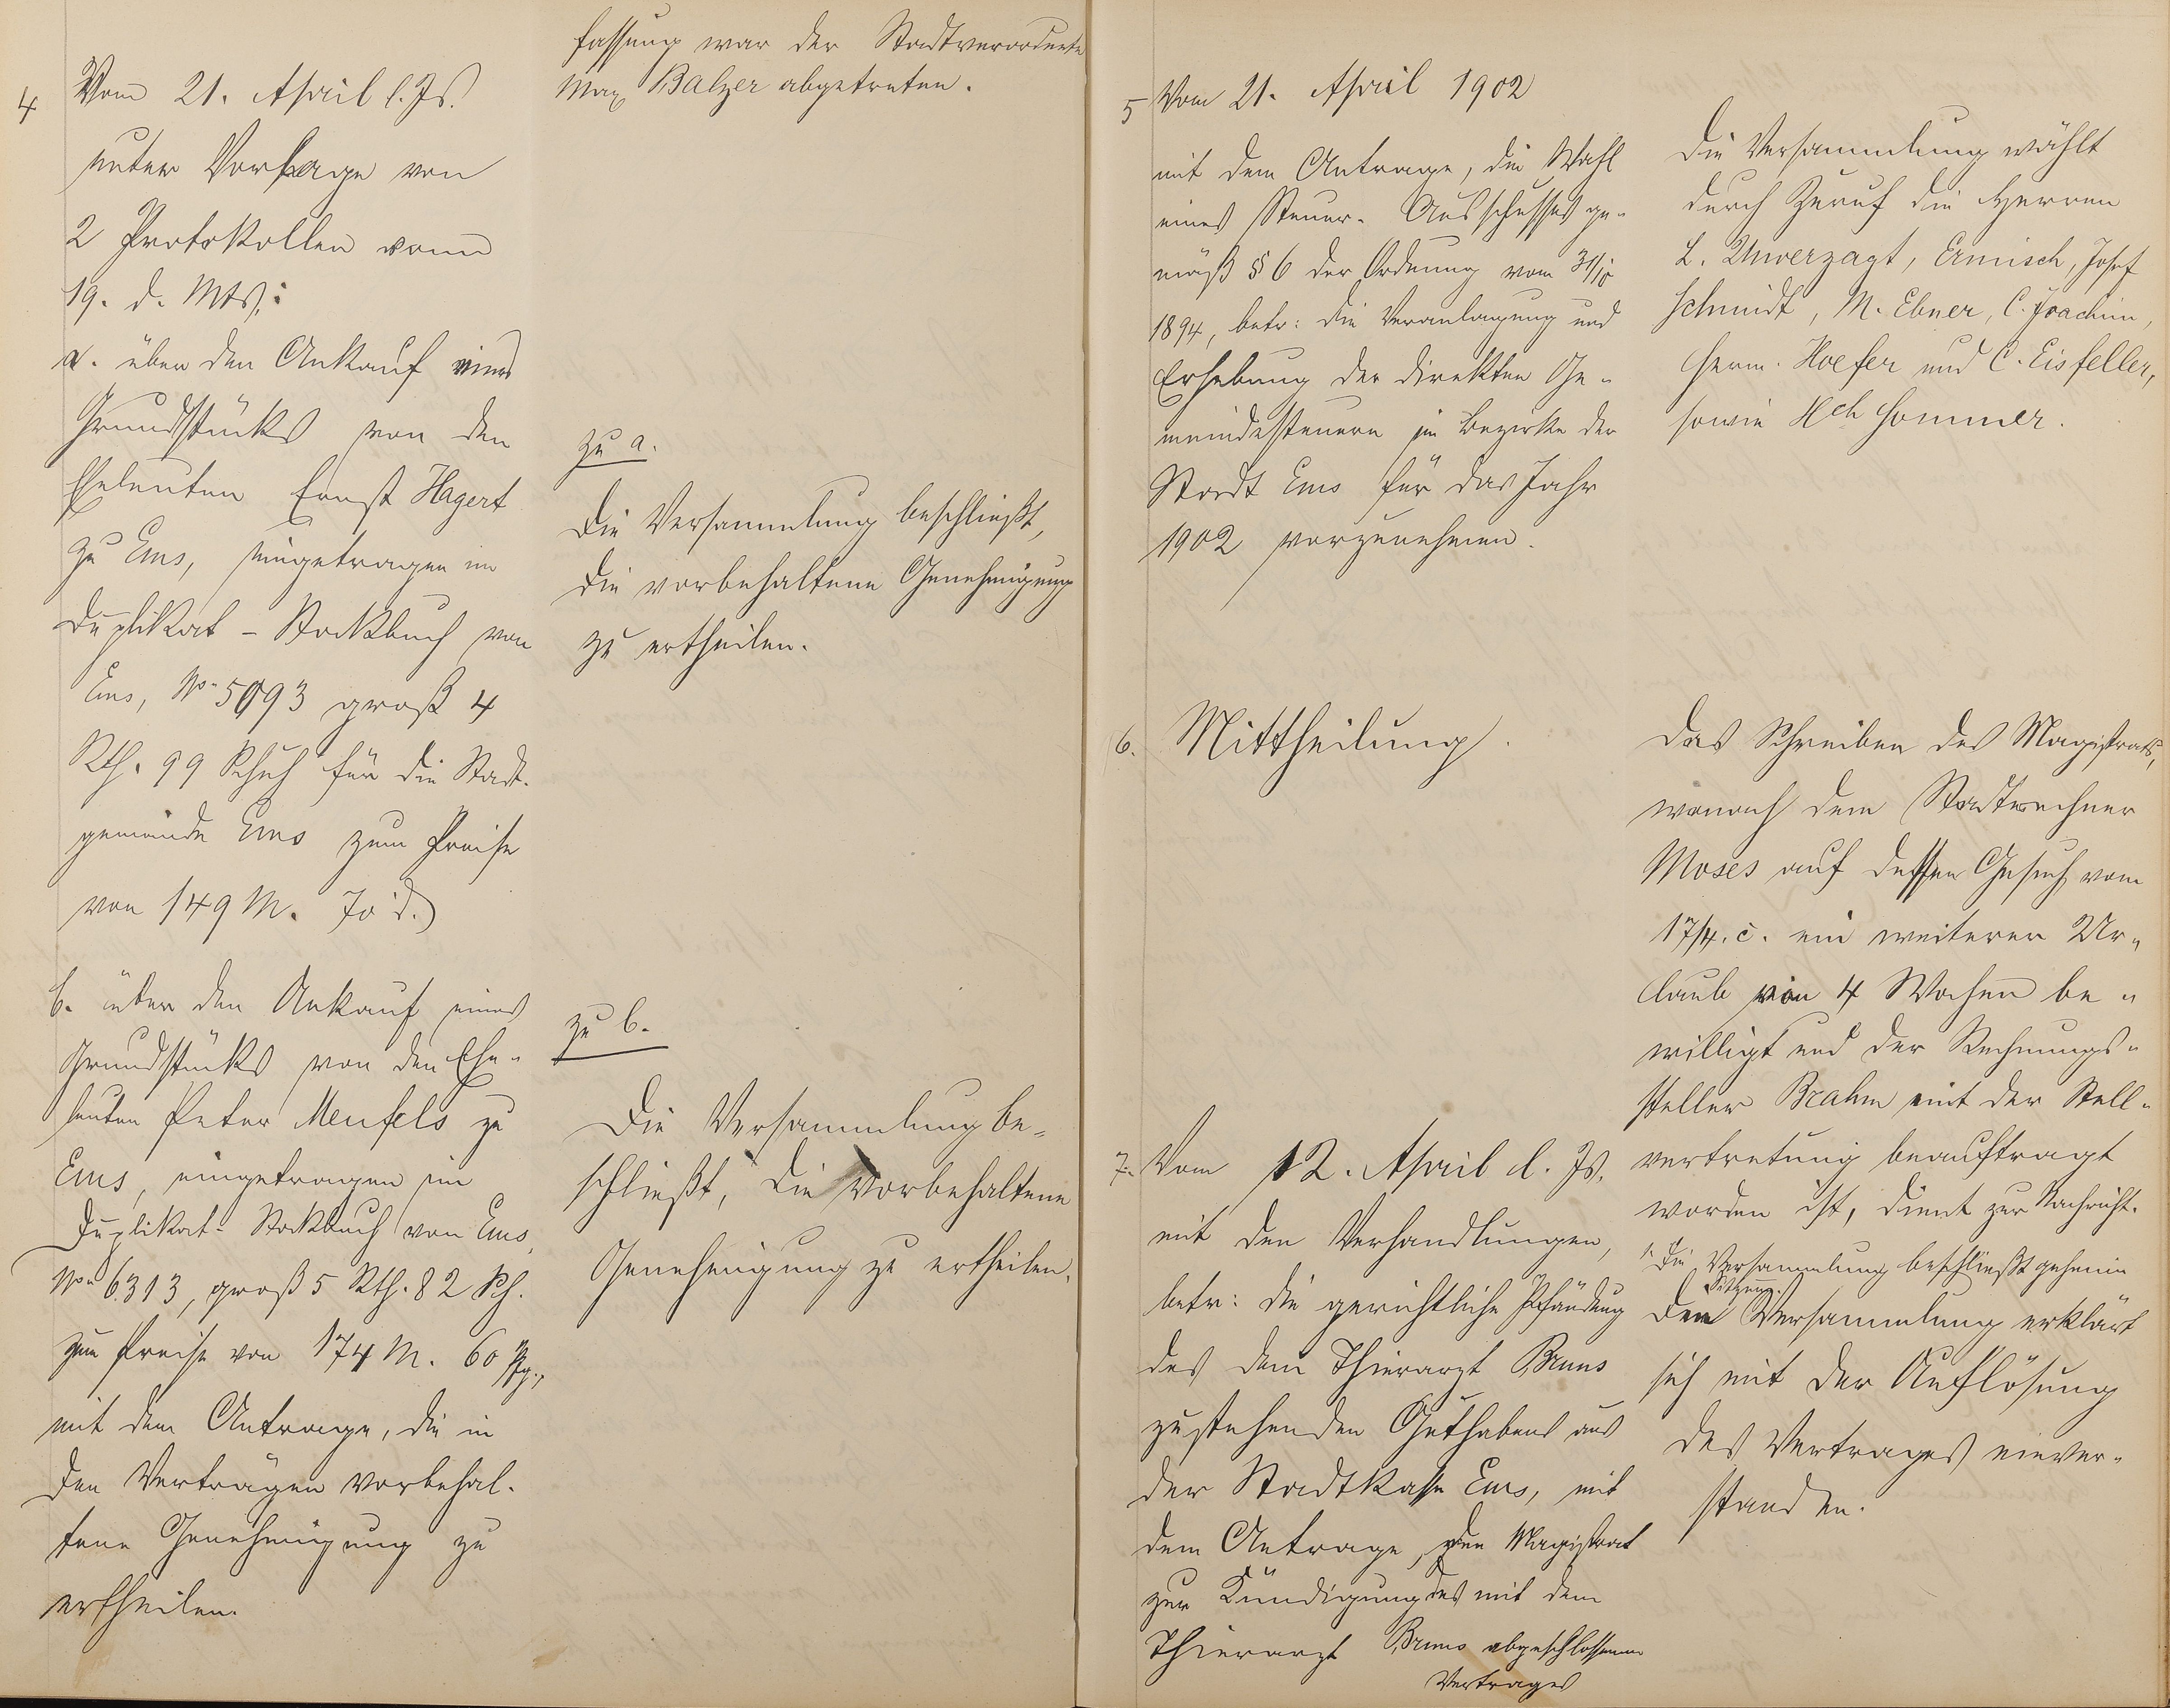 fassung war der Stadtverordnete
Max Balzer abgetreten.
4 Vom 21. April l. Js.
unter Vorlage von
2 Protokollen vom
19. d. Mts.:
a. über den Ankauf eines
Grundstücks von den
Eheleuten Ernst Hagert
zu Ems, eingetragen im
Duplikat-Stockbuch von
Ems, No. 5093 groß 4
Rth. 99 Schuh für die Stadt-
gemeinde Ems zum Preise
von 149 M. 70 d.
zu a.
Die Versammlung beschließt,
die vorbehaltene Genehmigung
zu ertheilen.
b. über den Ankauf eines
Grundstücks von den Ehe-
leuten Peter Menfels zu
Ems, eingetragen im
Duplikat-Stockbuch von Ems,
No. 6313, groß 5 Rth. 82 Sch.
zum Preise von 174 M. 60 Pfg.,
mit dem Antrage, die in
den Verträgen vorbehal-
tene Genehmigung zu
ertheilen.
zu b.
Die Versammlung be-
schließt, die vorbehaltene
Genehmigung zu ertheilen.
5 Vom 21. April 1902
mit dem Antrage, die Wahl
eines Steuer-Ausschusses ge-
mäß § 6 der Ordnung vom 31/10
1894, betr: die Veranlagung und
Erhebung der direkten Ge-
meindesteuern im Bezirke der
Stadt Ems für das Jahr
1902 vorzunehmen.
Die Versammlung wählt
durch Zuruf die Herren
L. Unverzagt, Ermisch, Josef
Schmidt, M. Ebner, C. Joachim,
Herm. Hoefer und C. Eisfeller,
sowie Hch Sommer.
6. Mittheilung.
Das Schreiben des Magistrats,
wonach dem Stadtrechner
Moses auf dessen Gesuch vom
17/4. c. ein weiterer Ur-
laub von 4 Wochen be-
willigt und der Rechnungs-
steller Brahm mit der Stell-
vertretung beauftragt
worden ist, dient zur Nachricht.
7. Vom 12. April d. Js.
mit den Verhandlungen,
betr: die gerichtliche Pfändung
des dem Thierarzt Bruns
zustehenden Guthabens aus
der Stadtkasse Ems, mit
dem Antrage, den Magistrat
zur Kündigung des mit dem
Thierarzt Bruns abgeschlossenen
Vertrages
1. Die Versammlung beschließt geheime
Sitzung.
Die Versammlung erklärt
sich mit der Auflösung
des Vertrages einver-
standen.